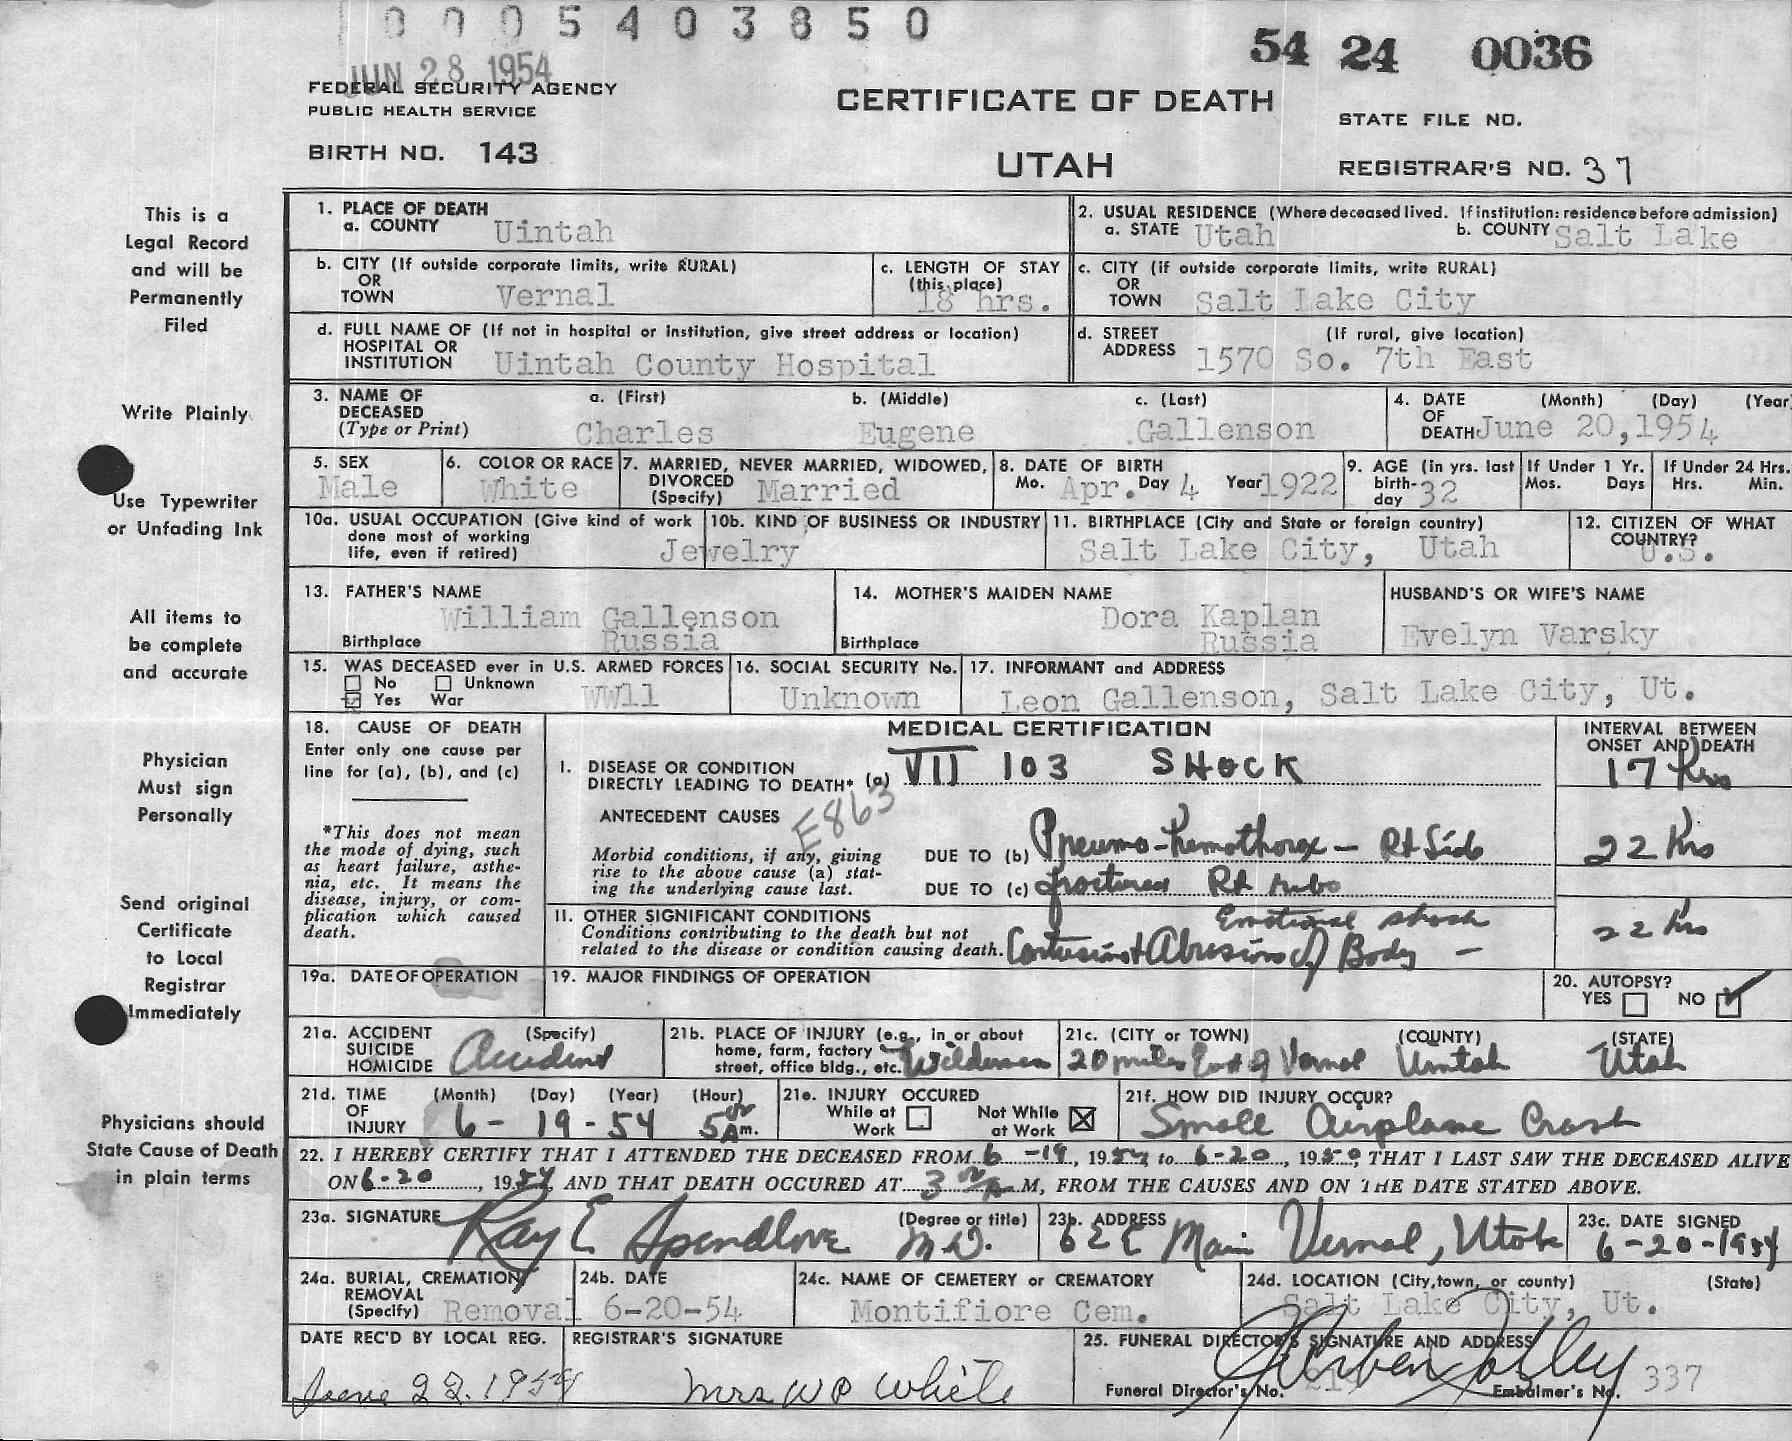 0005403850
JUN 28 1954
54 24 0036
FEDERAL SECURITY AGENCY
PUBLIC HEALTH SERVICE
CERTIFICATE OF DEATH
STATE FILE NO.
BIRTH NO. 143
UTAH
REGISTRAR'S NO. 37
This is a
Legal Record
and will be
Permanently
Filed
Write Plainly
Use Typewriter
or Unfading Ink
All items to
be complete
and accurate
Physician
Must sign
Personally
Send original
Certificate
to Local
Registrar
Immediately
Physicians should
State Cause of Death
in plain terms
1. PLACE OF DEATH
a. COUNTY Uintah
2. USUAL RESIDENCE (Where deceased lived. If institution: residence before admission)
a. STATE Utah b. COUNTY Salt Lake
b. CITY (If outside corporate limits, write RURAL)
OR
TOWN Vernal
c. LENGTH OF STAY
(this place)
18 hrs.
c. CITY (if outside corporate limits, write RURAL)
OR
TOWN Salt Lake City
d. FULL NAME OF (If not in hospital or institution, give street address or location)
HOSPITAL OR
INSTITUTION Uintah County Hospital
d. STREET (If rural, give location)
ADDRESS 1570 So. 7th East
3. NAME OF a. (First) b. (Middle) c. (Last)
DECEASED
(Type or Print) Charles Eugene Gallenson
4. DATE (Month) (Day) (Year)
OF
DEATH June 20,1954
5. SEX
Male
6. COLOR OR RACE
White
7. MARRIED, NEVER MARRIED, WIDOWED,
DIVORCED
(Specify) Married
8. DATE OF BIRTH
Mo. Apr. Day 4 Year 1922
9. AGE (in yrs. last
birth-
day 32
If Under 1 Yr.
Mos. Days
If Under 24 Hrs.
Hrs. Min.
10a. USUAL OCCUPATION (Give kind of work
done most of working
life, even if retired)
10b. KIND OF BUSINESS OR INDUSTRY
Jewelry
11. BIRTHPLACE (City and State or foreign country)
Salt Lake City, Utah
12. CITIZEN OF WHAT
COUNTRY?
U.S.
13. FATHER'S NAME
William Gallenson
Birthplace Russia
14. MOTHER'S MAIDEN NAME
Dora Kaplan
Birthplace Russia
HUSBAND'S OR WIFE'S NAME
Evelyn Varsky
15. WAS DECEASED ever in U.S. ARMED FORCES
No Unknown
Yes War WWll
16. SOCIAL SECURITY No.
Unknown
17. INFORMANT and ADDRESS
Leon Gallenson, Salt Lake City, Ut.
18. CAUSE OF DEATH
Enter only one cause per
line for (a), (b), and (c)
*This does not mean
the mode of dying, such
as heart failure, asthe-
nia, etc. It means the
disease, injury, or com-
plication which caused
death.
MEDICAL CERTIFICATION
INTERVAL BETWEEN
ONSET AND DEATH
I. DISEASE OR CONDITION
DIRECTLY LEADING TO DEATH* (a) VII 103 SHOCK 17 Hrs
E863
ANTECEDENT CAUSES
Morbid conditions, if any, giving
rise to the above cause (a) stat-
ing the underlying cause last.
DUE TO (b) Pneumo-hemothorax - Rt Side 22 Hrs
DUE TO (c) fractured Rt ribs
II. OTHER SIGNIFICANT CONDITIONS
Conditions contributing to the death but not
related to the disease or condition causing death.
Emotional shock
Contusion + Abrasions of Body - 22 Hrs
19a. DATE OF OPERATION
19. MAJOR FINDINGS OF OPERATION
20. AUTOPSY?
YES NO
21a. ACCIDENT (Specify)
SUICIDE
HOMICIDE Accident
21b. PLACE OF INJURY (e.g., in or about
home, farm, factory
street, office bldg., etc.
21c. (CITY or TOWN) (COUNTY) (STATE)
20 miles East of Vernal Uintah Utah
21d. TIME (Month) (Day) (Year) (Hour)
OF
INJURY 6-19-54 5 Am.
21e. INJURY OCCURED
While at
Work
Not While
at Work
21f. HOW DID INJURY OCCUR?
Small Airplane Crash
22. I HEREBY CERTIFY THAT I ATTENDED THE DECEASED FROM 6-19, 1954 to 6-20, 1950, THAT I LAST SAW THE DECEASED ALIVE
ON 6-20, 1954, AND THAT DEATH OCCURED AT 3 A M, FROM THE CAUSES AND ON THE DATE STATED ABOVE.
23a. SIGNATURE (Degree or title)
Ray E Spendlove M.D.
23b. ADDRESS
62 E Main Vernal, Utah
23c. DATE SIGNED
6-20-1954
24a. BURIAL, CREMATION
REMOVAL
(Specify) Removal
24b. DATE
6-20-54
24c. NAME OF CEMETERY or CREMATORY
Montifiore Cem.
24d. LOCATION (City, town, or county) (State)
Salt Lake City, Ut.
DATE REC'D BY LOCAL REG.
June 22, 1954
REGISTRAR'S SIGNATURE
Mrs W P White
25. FUNERAL DIRECTOR'S SIGNATURE AND ADDRESS
Funeral Director's No. Embalmer's No. 337